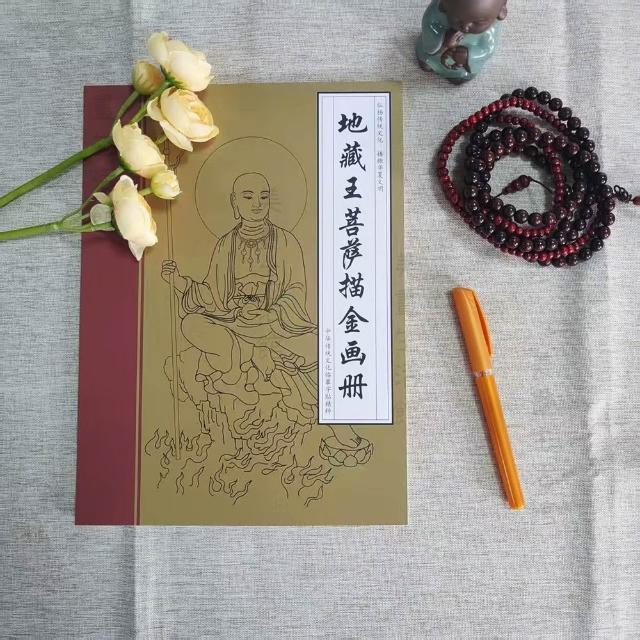 弘扬传统文化 传承华夏文明
地藏王菩萨描金画册
中华传统文化临摹字贴精粹